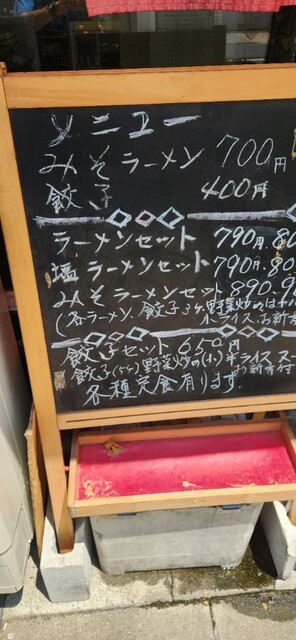 メニュー
みそラーメン 700円
餃子 400円
ラーメンセット 790円.80
塩ラーメンセット 790円.80
みそラーメンセット 890.9
(各ラーメン、餃子3ヶ、野菜炒め
半ライス、お新香
餃子セット 650円
餃子(5ケ)野菜炒め(小)半ライス スー
お新香付
各種定食有ります.